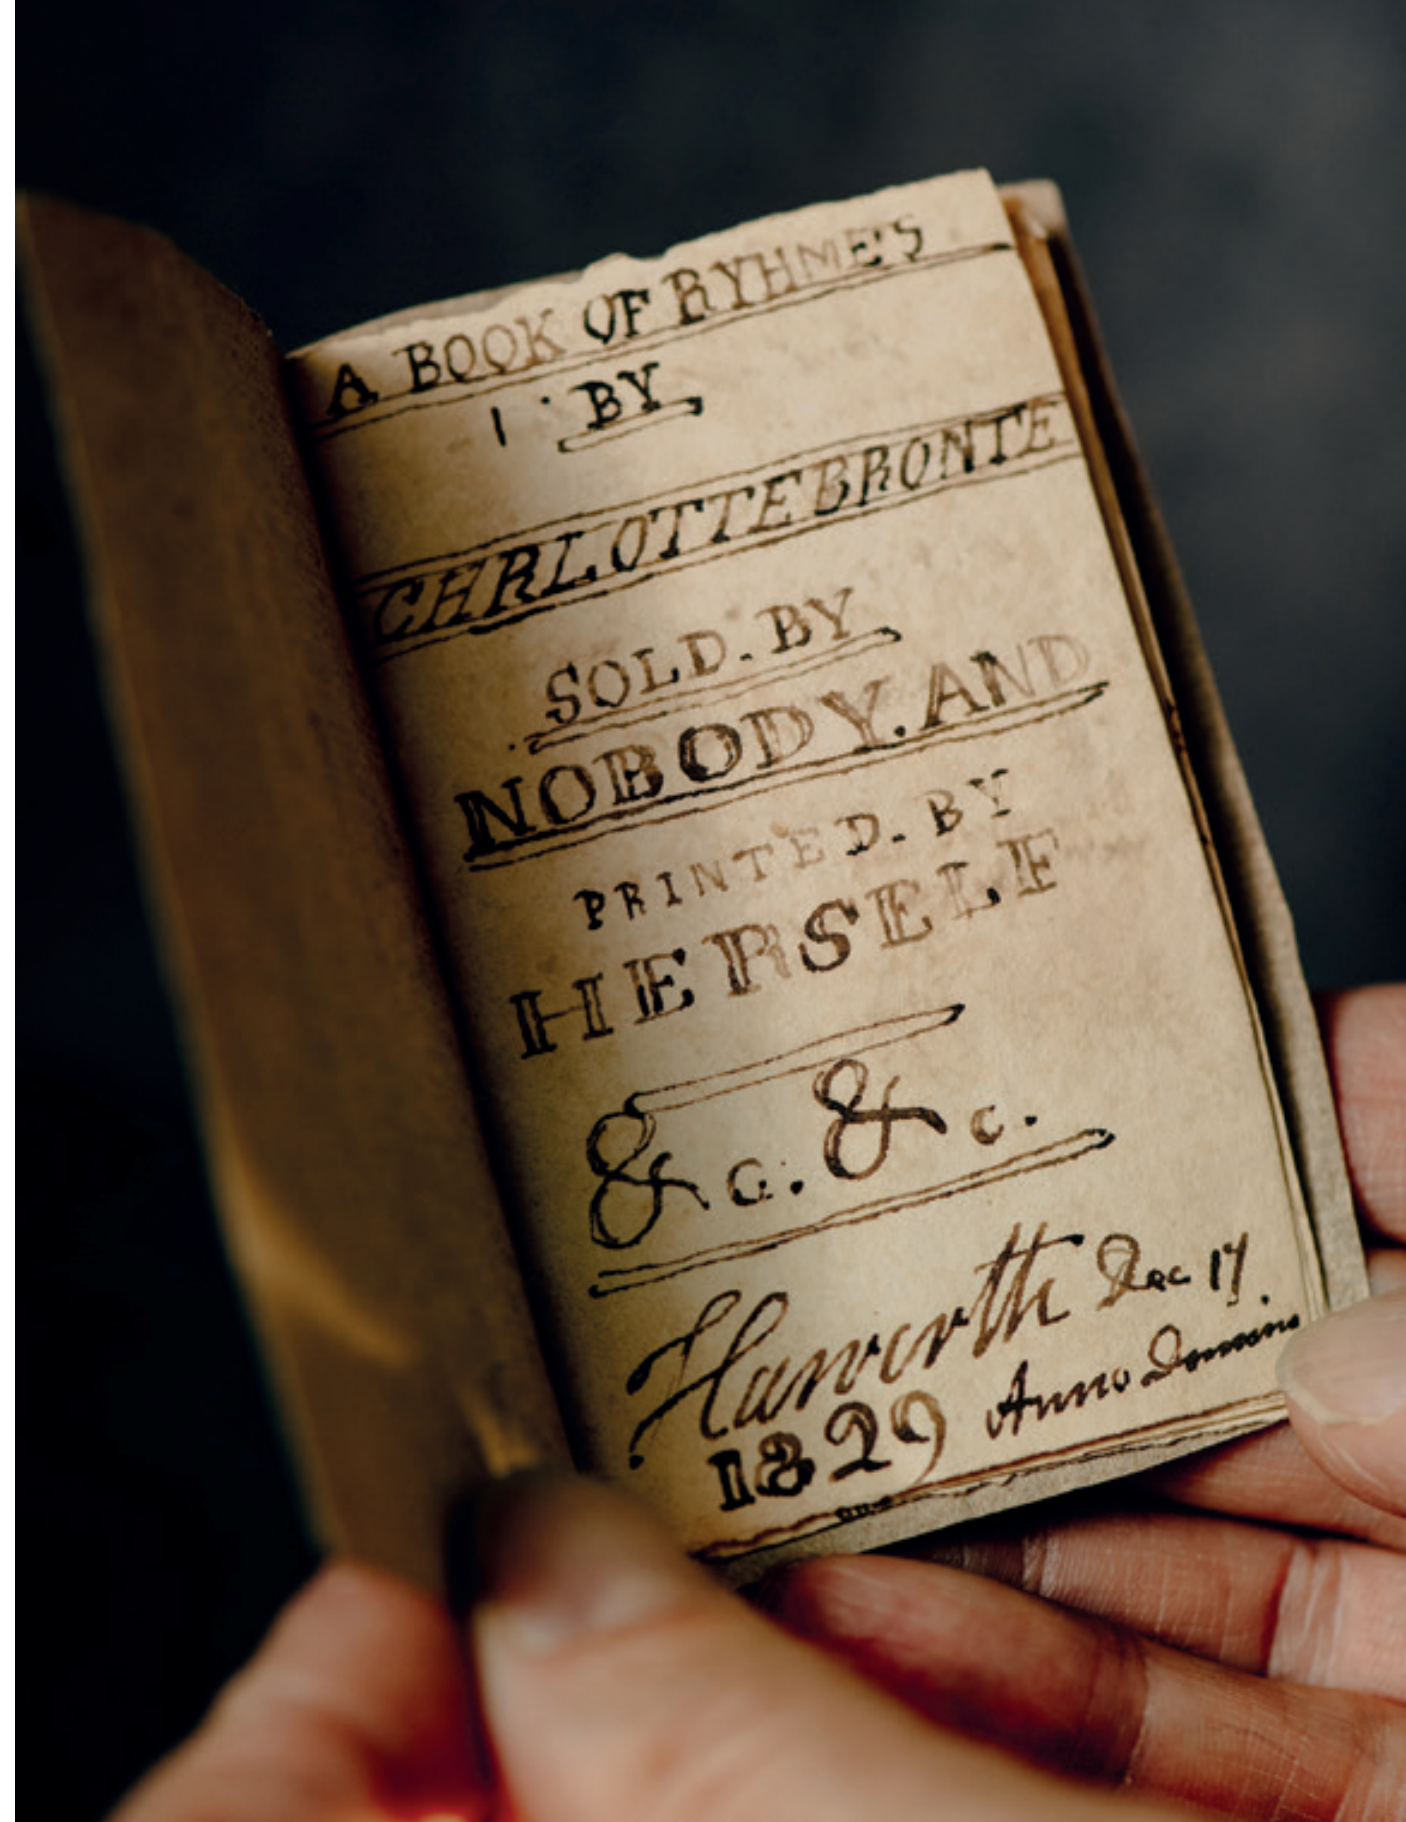 A BOOK OF RYHME'S
BY
CHRLOTTE BRONTE
SOLD. BY
NOBODY. AND
PRINTED. BY
HERSELF
&c. &c.
Haworth Dec 17.
1829 Anno Domini